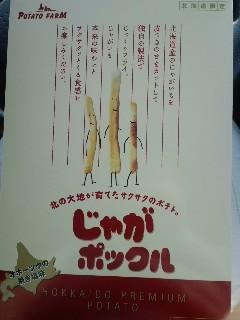 POTATO FARM
北海道限定
北海道産のじゃがいもを
皮つきのままカットして
独自の製法で
じっくりフライ。
じゃがいも
本来の味わいと
サクサクッとくる食感を
お楽しみください。
北の大地が育てたサクサクのポテト。
じゃが
ポックル
オホーツクの
焼き塩味
HOKKAIDO PREMIUM
POTATO